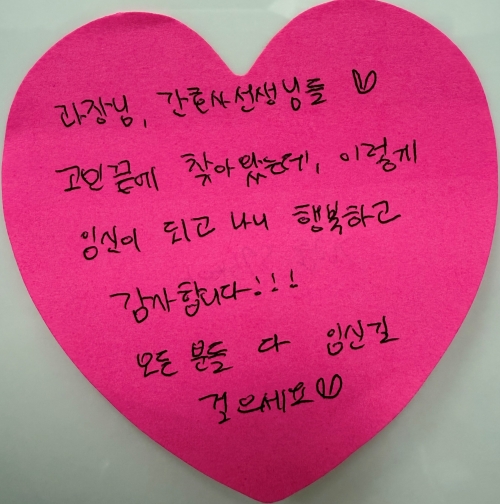 과장님, 간호사선생님들 ♡
고민끝에 찾아왔는데, 이렇게
임신이 되고 나니 행복하고
감사합니다!!!
모든 분들 다 임신길
걸으세요♡